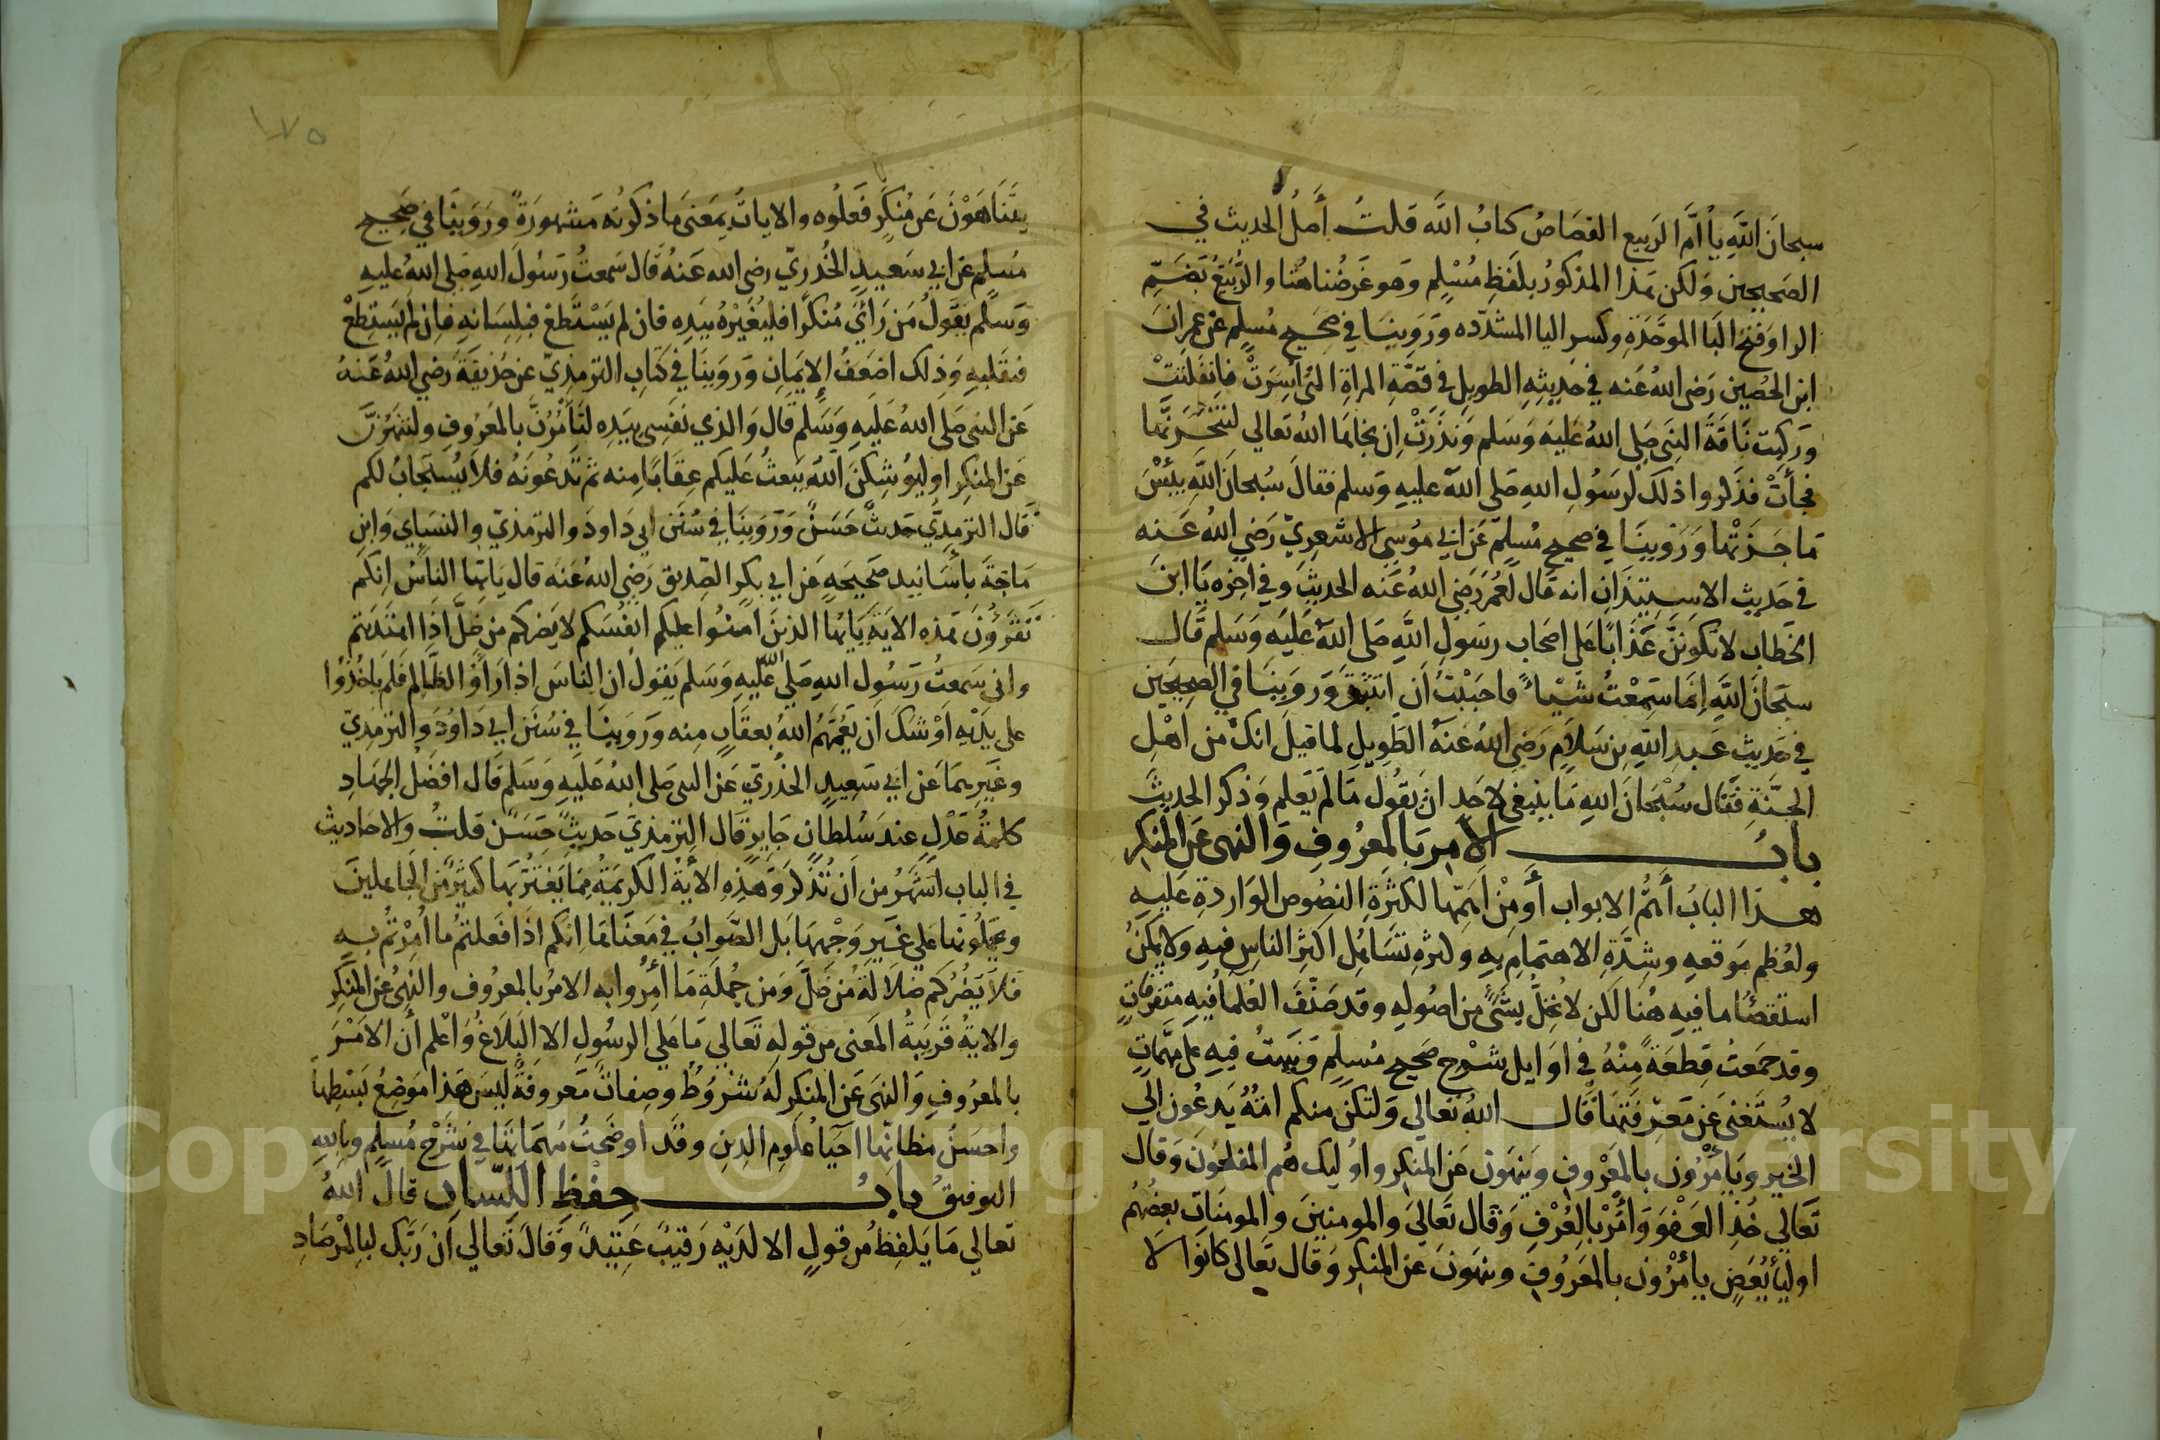 سبحان الله يا أم الربيع القصاص كتاب الله قلت أصل الحديث في
الصحيحين ولكن هذا المذكور بلفظ مسلم وهو غرضنا هنا والربيع بضم
الرا وفتح البا الموحدة وكسر اليا المشدده وروينا في صحيح مسلم عن عمران
ابن الحصين رضي الله عنه في حديثه الطويل في قصة المراة التي أسرت فانفلتت
وركبت ناقة النبي صلى الله عليه وسلم ونذرت إن نجاها الله تعالي لتنحرنها
فجأت فذكروا ذلك لرسول الله صلى الله عليه وسلم فقال سبحان الله بئس
ما جزتها وروينا في صحيح مسلم عن ابي موسى الاشعري رضي الله عنه
في حديث الاستيذان انه قال لعمر رضي الله عنه الحديث وفي اخره يا ابن
الخطاب لا تكونن عذابا على اصحاب رسول الله صلى الله عليه وسلم قال
سبحان الله إنما سمعت شيأ فاحببت أن اتثبت وروينا في الصحيحين
في حديث عبد الله بن سلام رضي الله عنه الطويل لما قيل انك من اهل
الجنة فقال سبحان الله ما ينبغي لاحد ان يقول ما لم يعلم وذكر الحديث
باب الأمر بالمعروف والنهى عن المنكر
هذا الباب أهم الابواب أو من اهمها لكثرة النصوص الواردة عليه
ولعظم موقعه وشدة الاهتمام به وكثرة تساهل اكثر الناس فيه ولا يمكن
استقصا ما فيه هنا لكن لا نخل بشئ من اصوله وقد صنف العلما فيه متفرقات
وقد جمعت قطعة منه في اوايل شرح صحيح مسلم ونبهت فيه على مهمات
لا يستغنى عن معرفتها قال الله تعالي ولتكن منكم امة يدعون إلي
الخير ويأمرون بالمعروف وينهون عن المنكر واوليك هم المفلحون وقال
تعالي خذ العفو وأمر بالعرف وقال تعالي والمومنين والمومنات بعضهم
اوليا بعض يأمرون بالمعروف وينهون عن المنكر وقال تعالى كانوا لا
١٧٥
يتناهون عن منكر فعلوه والايات بمعنى ما ذكرته مشهورة وروينا في صحيح
مسلم عن ابي سعيد الخدري رضى الله عنه قال سمعت رسول الله صلى الله عليه
وسلم يقول من رأي منكرا فليغيره بيده فان لم يستطع فبلسانه فان لم يستطع
فبقلبه وذلك اضعف الإيمان وروينا في كتاب الترمذي عن حذيفة رضي الله عنه
عن النبى صلى الله عليه وسلم قال والذي نفسى بيده لتأمرن بالمعروف ولتنهون
عن المنكر او ليوشكن الله يبعث عليكم عقابا منه ثم تدعونه فلا يستجاب لكم
قال الترمذي حديث حسن وروينا في سنن ابي داود والترمذي والنساي وابن
ماجة بأسانيد صحيحه عن ابي بكر الصديق رضي الله عنه قال يايها الناس انكم
تقرؤن هذه الاية يايها الذين امنوا عليكم انفسكم لا يضركم من ضل اذا اهتديتم
واني سمعت رسول الله صلى الله عليه وسلم يقول ان الناس اذا رأوا الظالم فلم ياخذوا
على يديه أوشك أن يعمهم الله بعقاب منه وروينا في سنن ابي داود والترمذي
وغيرهما عن ابي سعيد الخدري عن النبى صلى الله عليه وسلم قال افضل الجهاد
كلمة عدل عند سلطان جاير قال الترمذي حديث حسن قلت والاحاديث
في الباب اشهر من ان تذكر وهذه الاية الكريمة مما يغتر بها كثير من الجاهلين
ويحملونها علي غير وجهها بل الصواب في معناها انكم اذا فعلتم ما امرتم به
فلا يضركم ضلالة من ضل ومن جملة ما أمروا به الامر بالمعروف والنهى عن المنكر
والاية قريبة المعنى من قوله تعالي ما علي الرسول الا البلاغ واعلم أن الامر
بالمعروف والنهى عن المنكر له شروط وصفات معروفة ليس هذا موضع بسطها
واحسن مظانها احيا علوم الدين وقد اوضحت مهماتها في شرح مسلم وبالله
التوفيق باب حفظ اللسان قال الله
تعالي ما يلفظ من قول الا لديه رقيب عتيد وقال تعالي ان ربك لبالمرصاد
Copyright © King Saud University